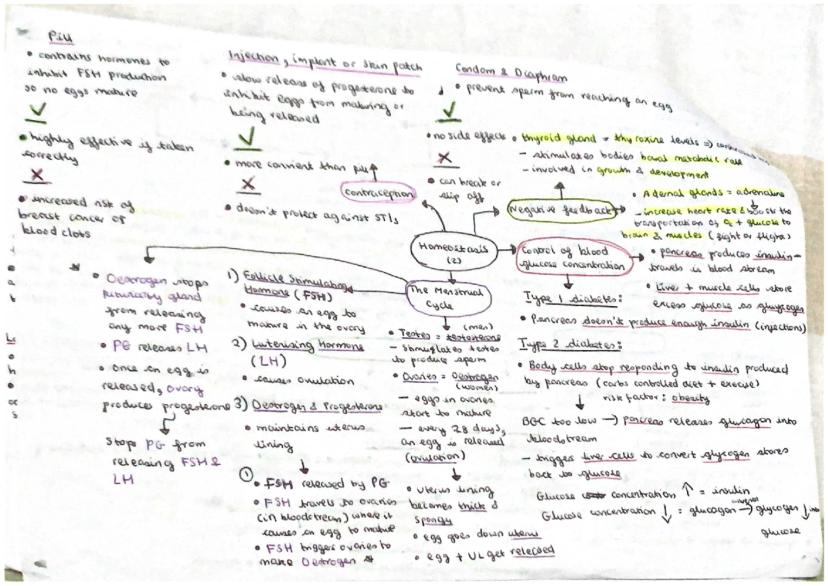 Pill
• contrains hormones to
inhibit FSH production
so no eggs mature
✓
• highly effective if taken
correctly
✗
• increased risk of
breast cancer or
blood clots
Injection, implant or skin patch
• slow release of progesterone to
inhibit eggs from maturing or
being released
✓
• more convient than pill
✗
• doesn't protect against STIs
contraception
Condom & Diaphram
• prevent sperm from reaching an egg
✓
• no side effects
✗
• can break or
slip off
• thyroid gland = thyroxine levels =>
- stimulates bodies basal metabolic rate
- involved in growth & development
Negative feedback
• Adernal glands = adrenaline
- increase heart rate & boosts the
transportation of O2 + glucose to
brain & muscles (fight or flight)
Homeostasis
(2)
Control of blood
glucose concentration
• pancreas produces insulin -
travels in blood stream
• Liver + muscle cells store
excess glucose as glycogen
Type 1 diabetes:
• Pancreas doesn't produce enough insulin (injections)
Type 2 diabetes:
• Body cells stop responding to insulin produced
by pancreas (carbs controlled diet + exercise)
risk factor: obesity
BGC too low → pancreas releases glucagon into
bloodstream
- triggers liver cells to convert glycogen stores
back to glucose
Glucose concentration ↑ = insulin
Glucose concentration ↓ = glucagon → glycogen into
glucose
The Menstrual
Cycle
1) Follicle Stimulating
Hormone (FSH)
• causes an egg to
mature in the ovary
2) Luteinising Hormone
(LH)
• causes ovulation
3) Oestrogen & Progesterone
• maintains uterus
lining
① • FSH released by PG
• FSH travels to ovaries
(in bloodstream) where it
causes an egg to mature
• FSH triggers ovaries to
make Oestrogen *
* • Oestrogen stops
pituitary gland
from releasing
any more FSH
• PG releases LH
• once an egg is
released, ovary
produces progesterone
Stops PG from
releasing FSH &
LH
(men)
• Testes = testosterone
- stimulates testes
to produce sperm
• Ovaries = Oestrogen
(women)
- eggs in ovaries
start to mature
- every 28 days,
an egg is released
(ovulation)
• Uterus lining
becomes thick &
spongy
• egg goes down uterus
• egg + UL get released